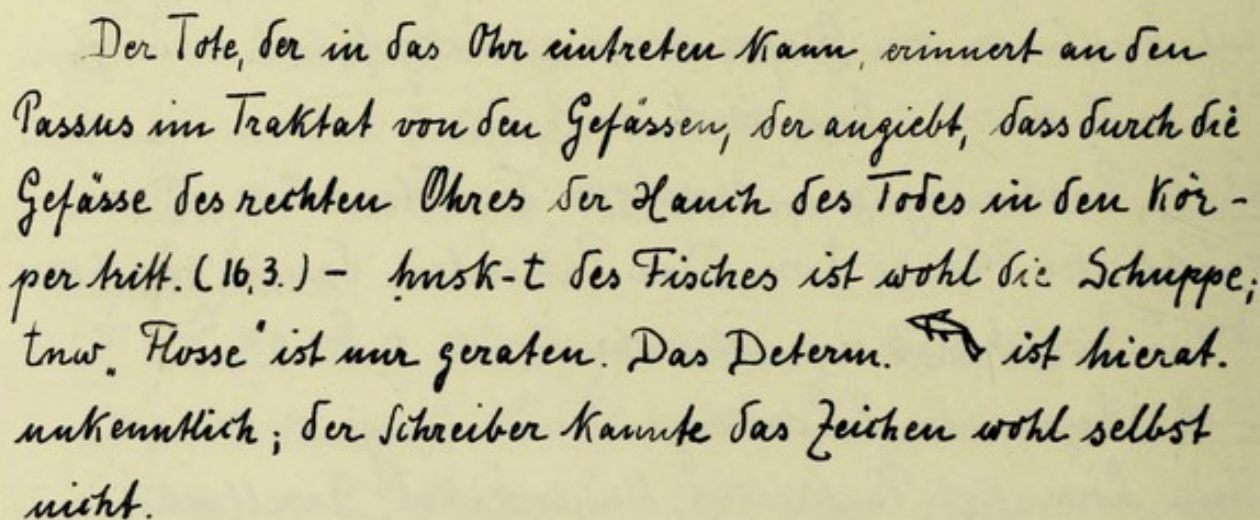 Der Tote, der in das Ohr eintreten kann, erinnert an den
Passus im Traktat von den Gefässen, der angiebt, dass durch die
Gefässe des rechten Ohres der Hauch des Todes in den Kör-
per tritt. (16,3.) - ḥnsk-t des Fisches ist wohl die Schuppe;
tnw „Flosse“ ist nur geraten. Das Determ. ist hierat.
unkenntlich; der Schreiber kannte das Zeichen wohl selbst
nicht.